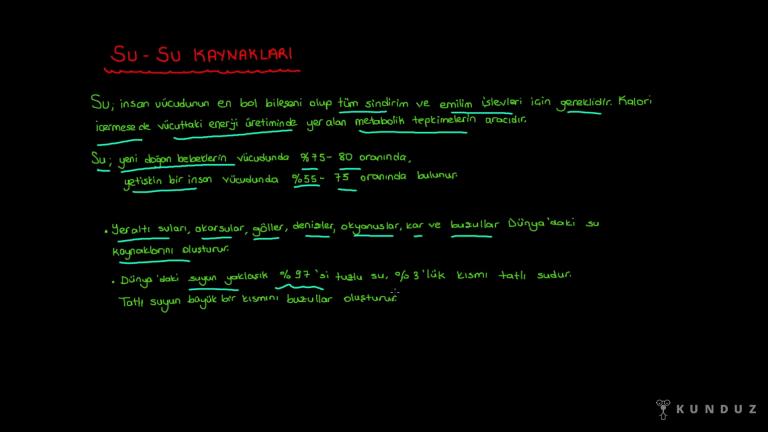 SU - SU KAYNAKLARI
Su; insan vücudunun en bol bileşeni olup tüm sindirim ve emilim işlevleri için gereklidir. Kalori
içermese de vücuttaki enerji üretiminde yer alan metabolik tepkimelerin aracıdır.
Su; yeni doğan bebeklerin vücudunda %75- 80 oranında,
yetişkin bir insan vücudunda %55- 75 oranında bulunur.
• Yeraltı suları, akarsular, göller, denizler, okyanuslar, kar ve buzullar Dünya'daki su
kaynaklarını oluşturur.
• Dünya'daki suyun yaklaşık %97'si tuzlu su, %3'lük kısmı tatlı sudur.
Tatlı suyun büyük bir kısmını buzullar oluşturur.
KUNDUZ